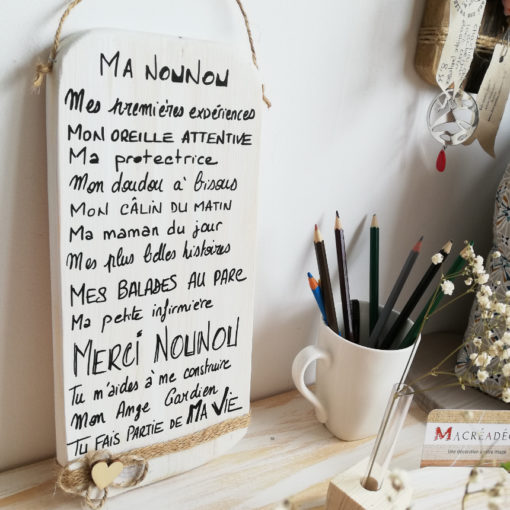 MA NOUNOU
Mes premières expériences
MON OREILLE ATTENTIVE
Ma protectrice
Mon doudou à bisous
MON CÂLIN DU MATIN
Ma maman du jour
Mes plus belles histoires
MES BALADES AU PARC
Ma petite infirmière
MERCI NOUNOU
Tu m'aides à me construire
Mon Ange Gardien
TU FAIS PARTIE DE MA VIE
MACRÉADÉC
Une décoration à votre image